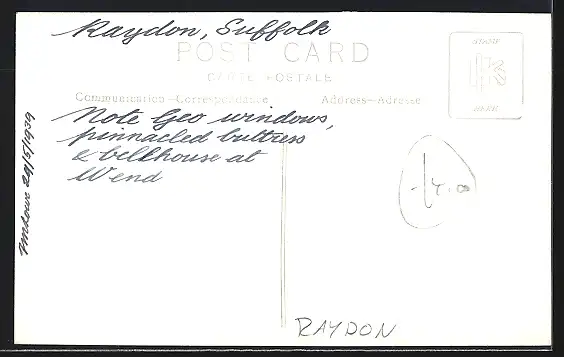 Raydon, Suffolk
POST CARD
CARTE POSTALE
Communication—Correspondance
Address—Adresse
Note Geo windows,
pinnacled buttress
& bellhouse at
W end
29/5/1939
RAYDON